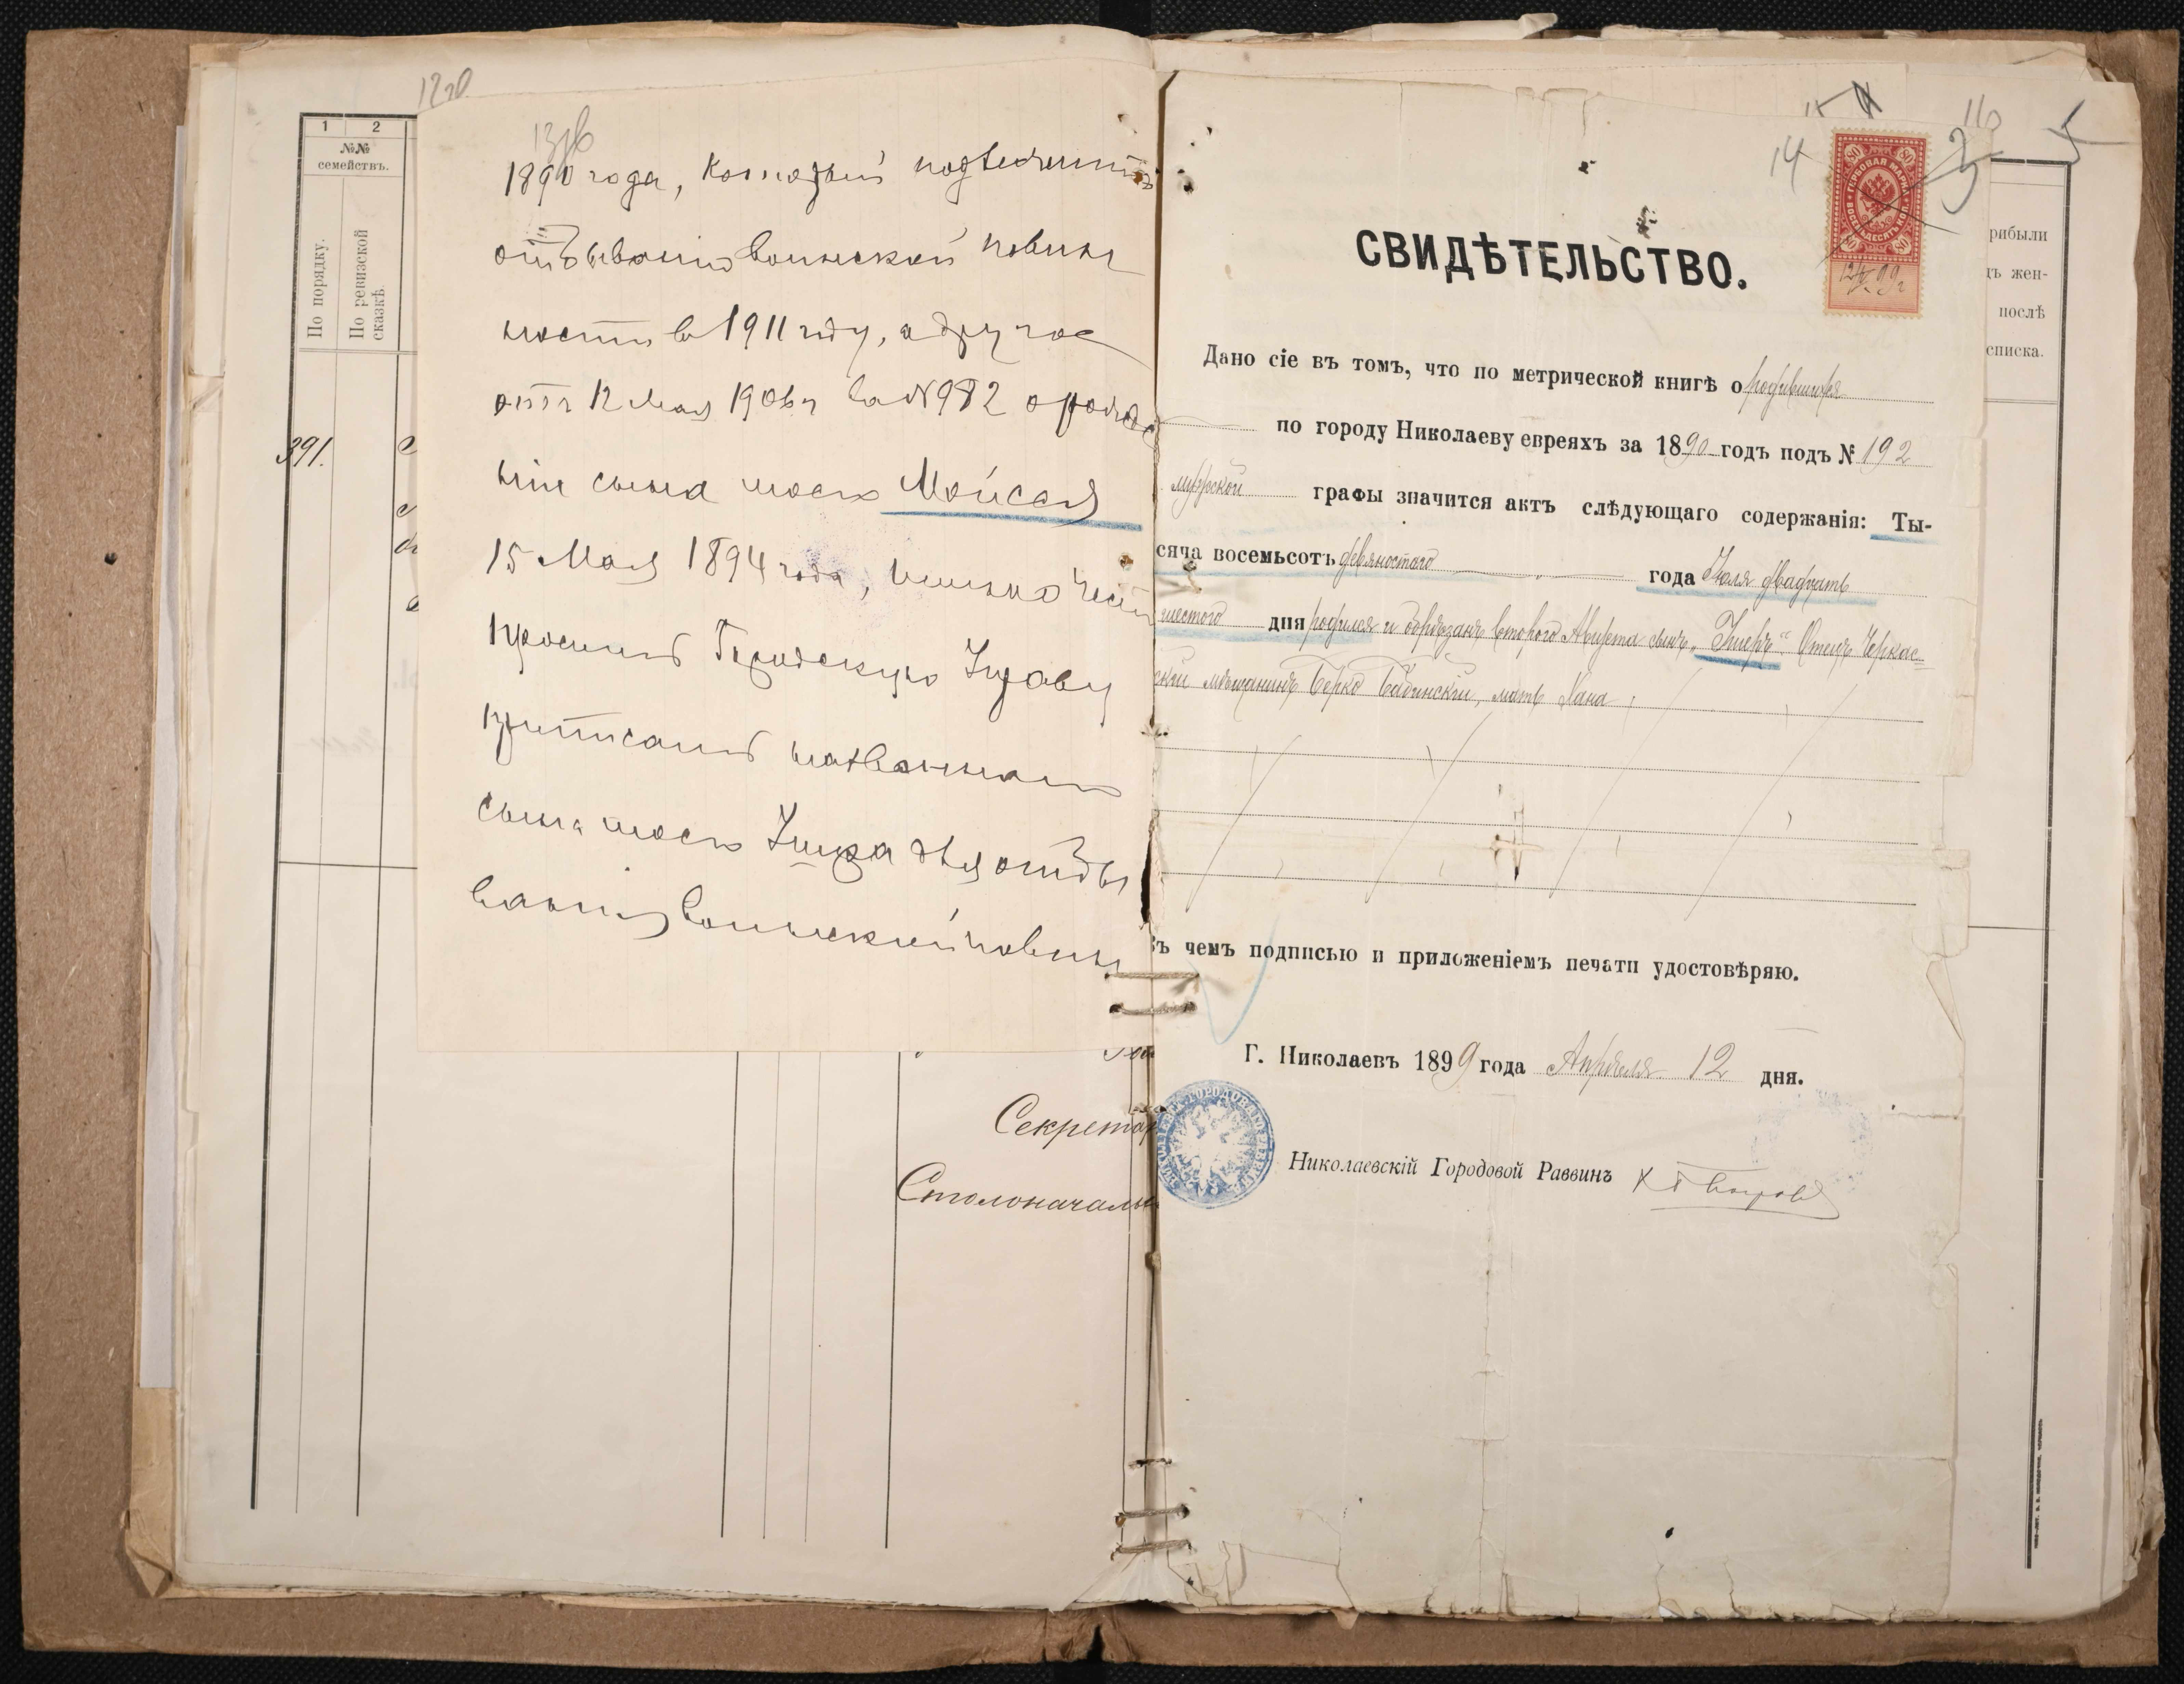 12об
13об
1 2
№№
семействъ.
По порядку.
По ревизской
сказкѣ.
391.
1890 года, который подлежитъ
отбыванію воинской повин
ности въ 1911 году, а другое
отъ 12 Мая 1906 г за № 982 о рожде
ніи сына моего Мойсея
15 Мая 1894 года, имѣю честь
просить Городскую Управу
приписать названнаго
сына моего Ицка для отбы
ванія воинской повин
Секретар
Столоначаль
14
116
5
ГЕРБОВАЯ МАРКА
ВОСЕМЬДЕСЯТЪ КОП.
80 80
80 80
СВИДѢТЕЛЬСТВО.
рибыли
ъ жен-
послѣ
списка.
Дано сіе въ томъ, что по метрической книгѣ о родившихся
по городу Николаеву евреяхъ за 1890 годъ подъ № 192
мужской графы значится актъ слѣдующаго содержанія: Ты-
сяча восемьсотъ девяностаго года Іюля двадцать
шестого дня родился и обрѣзанъ второго Августа сынъ „ “ Отецъ Черкас-
скій мѣщанинъ Берко мать Хана
Въ чемъ подписью и приложеніемъ печати удостовѣряю.
Г. Николаевъ 1899 года Апрѣля 12 дня.
Николаевскій Городовой Раввинъ